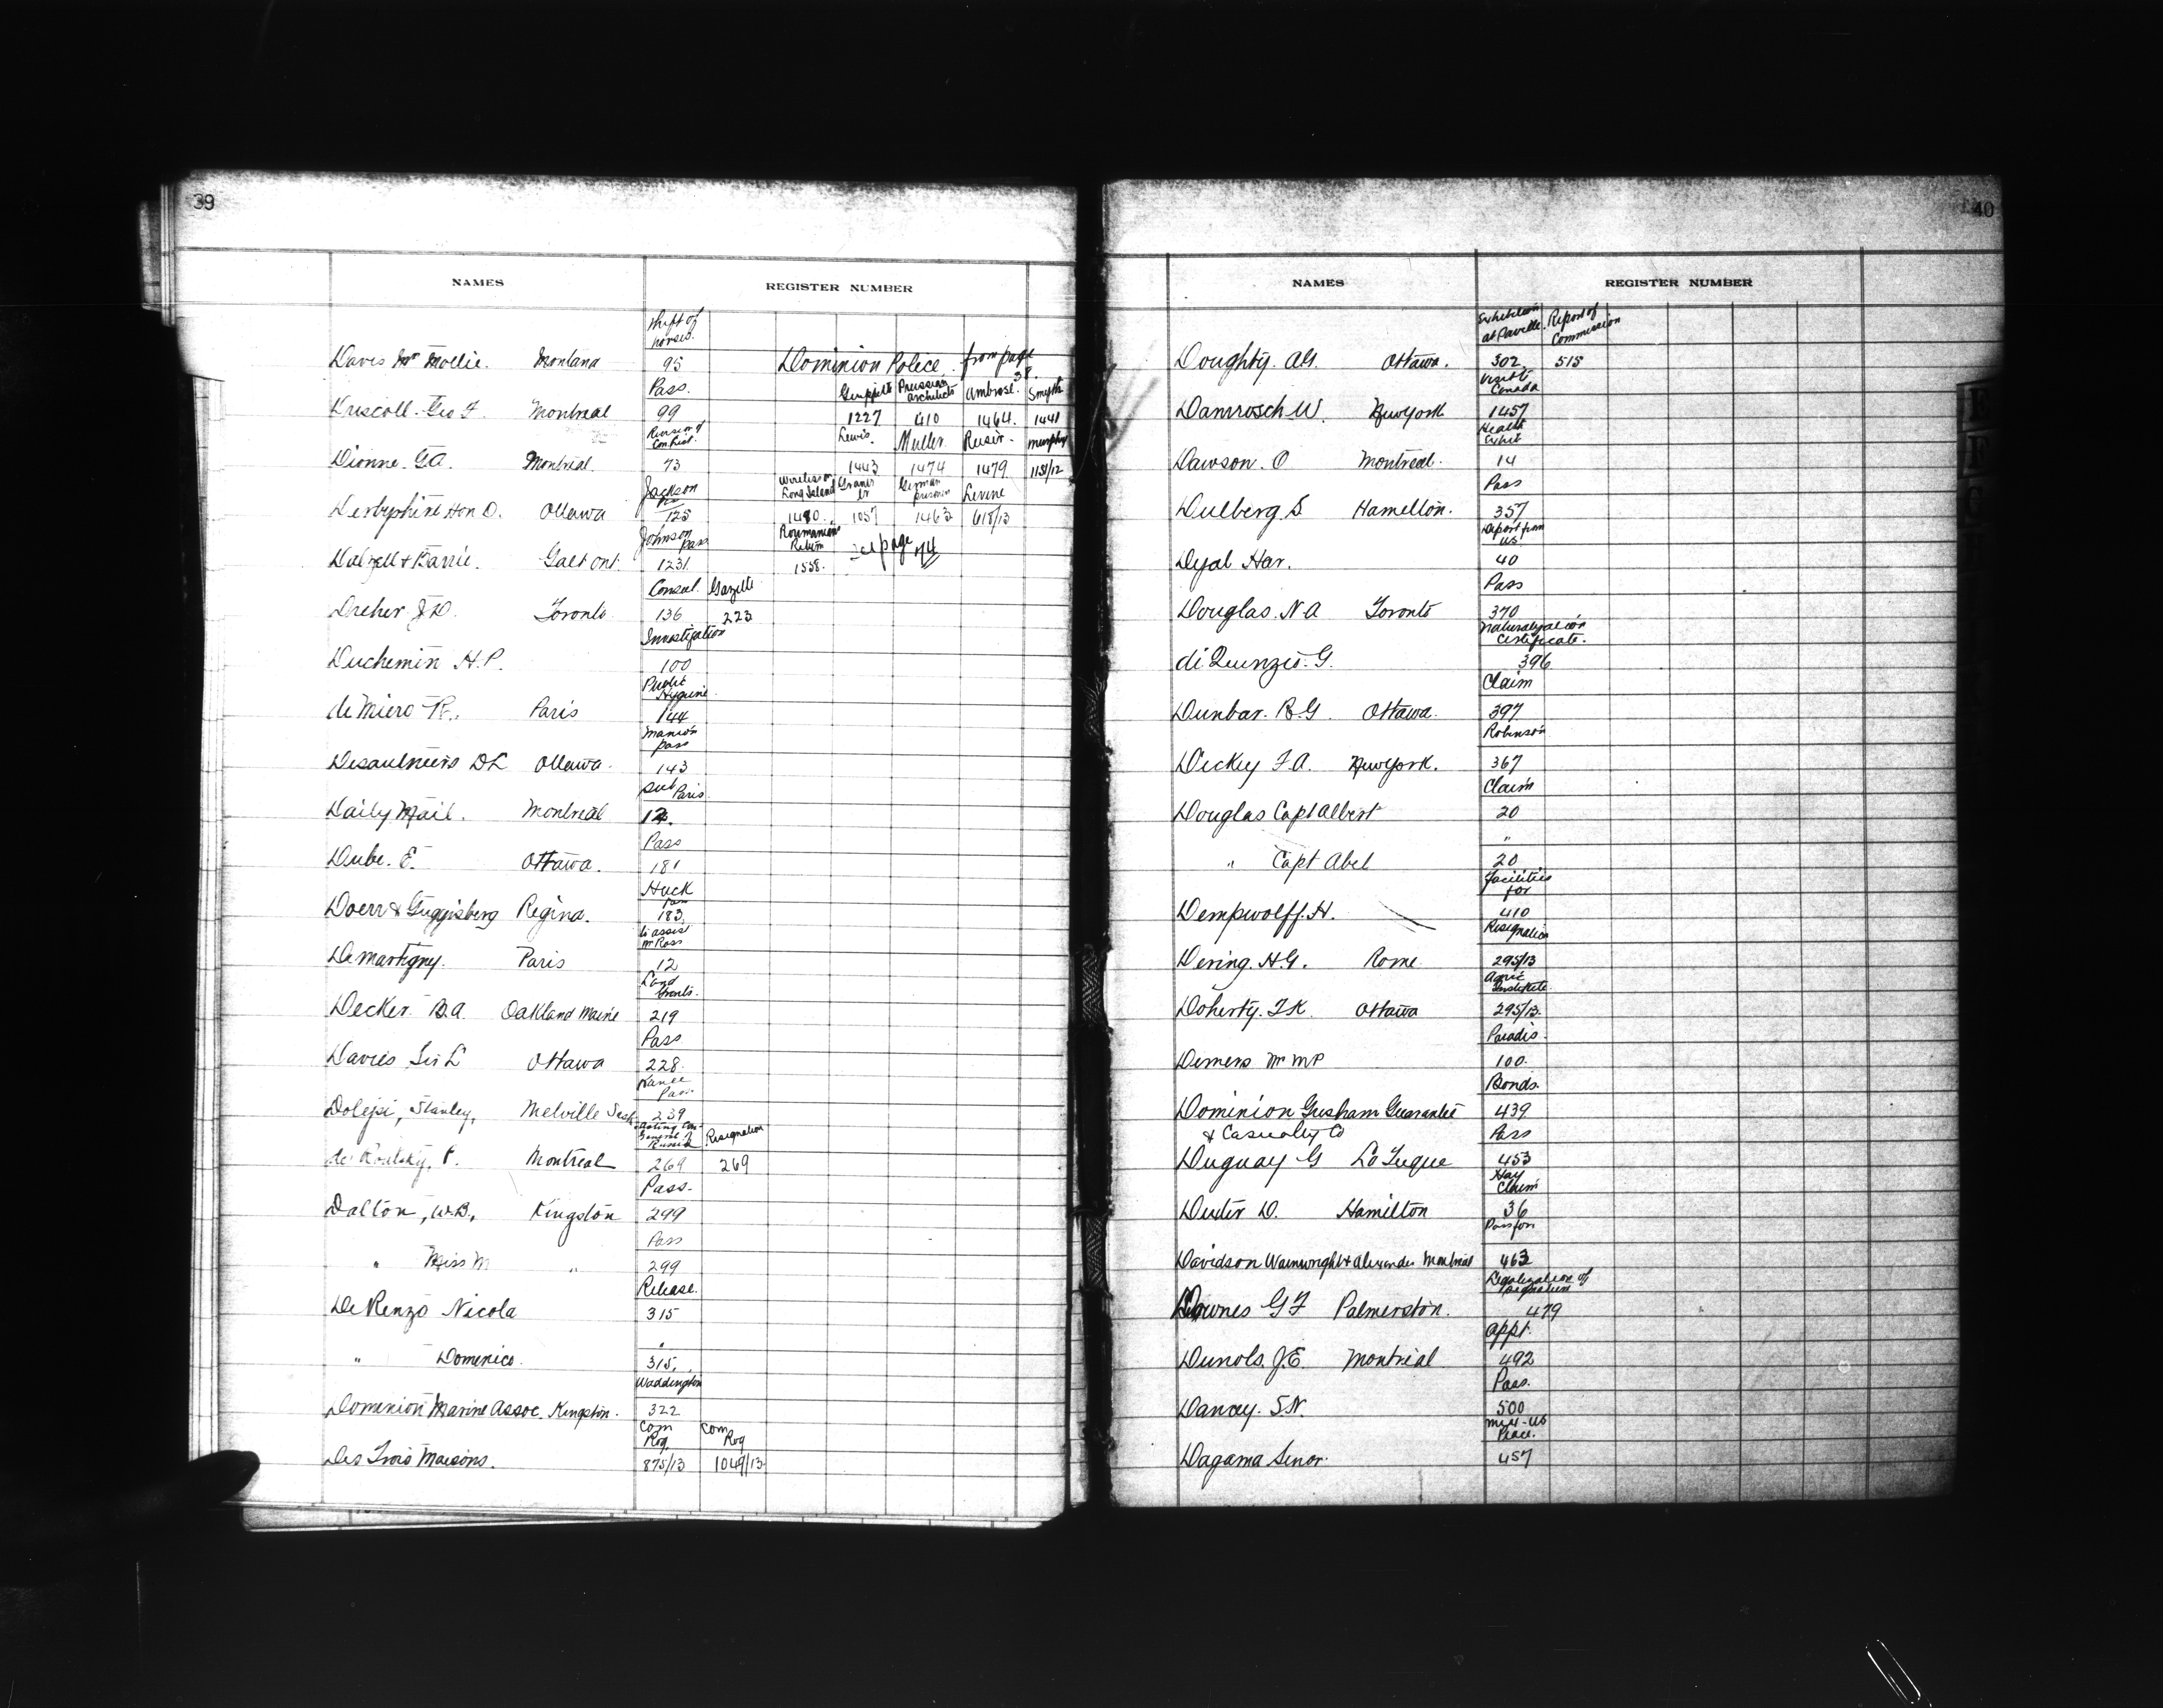 39
NAMES REGISTER NUMBER
theft of horses.
Davis Mr Mollie. Montana 95 Dominion Police from page 38.
Pass. Guppitt Prussian architects Ambrose. Smyth
Driscoll. Geo F. Montreal 99 1227 410 1464. 1441
Revision of Lewis. Muller Reisir. Murphy
Dionne. G.A. Montreal. 73 1443 1474 1479 1151/12
Jackson Pass Wireless on Long Island German prisoner Levine
Derbyshire Hon D. Ottawa 125 1480. 1057 1463 618/13
Johnson pass Roumanian Return see page
Dalzell & Barrie. Galt Ont. 1231. 1558.
Consul. Gazette
Dreher J.D. Toronto 136 223
Investigation
Duchemin H.P. 100
Public Hygiene.
de Miero R.. Paris 144
Manion pass
Desaulniers D L Ottawa. 143
Paris.
Daily Mail. Montreal 12.
Pass
Dube. E. Ottawa. 181
Huck pass
Doerr & Guggisberg Regina. 183.
to assist Mr Ross
Demartigny. Paris 12
Land Grants.
Decker B.A. Oakland Maine 219
Pass
Davies Sir L Ottawa 228.
Pass.
Dolejsi, Stanley, Melville Sask. 239
Acting Con General of Russia Resignation
de P. Montreal 269 269
Pass.
Dalton, W.B., Kingston 299
Pass
" Miss M " 299
Release.
De Renzo Nicola 315
"
" Domenico. 315.
Waddington
Dominion Marine Assoc. Kingston. 322
Com Rog Com Rog
Des Trois Maisons. 875/13 1049/13
40
NAMES REGISTER NUMBER
Exhibition at Report of Commission
Doughty. A.G. Ottawa. 302. 515
Visit to Canada
Damrosch W. New York 1457
Health Exhibit
Dawson. O Montreal. 14
Pass
Dulberg. S Hamilton. 357
Deport from US.
Dyal Har. 40
Pass
Douglas. N.A Toronto 370
Naturalization Certificate.
di Qunzio. G. 396
Claim
Dunbar. R.G. Ottawa. 397
Robinson
Dickey F.A. New York. 367
Claim
Douglas Capt Albert 20
"
" Capt Abel 20
facilities for
Dempwolff. H. 410
Resignation
Dering. H.G. Rome 295/13
Agric Institute.
Doherty. T.K. Ottawa 295/13.
Paradis.
Demers Mr M.P. 100.
Bonds.
Dominion Gresham Guarantee 439
& Casualty Co Pass
Duguay G La Tuque 453
Hay Claim
Dexter D. Hamilton 36
Pass for
Davidson Wainwright & Alexander Montreal 463
Legalization of signature
Downes G F Palmerston. 479
Appt.
Dunols. J.E. Montreal 492
Pass.
Dancy. S.N. 500
Mex-US Peace.
Dagama Senor. 457